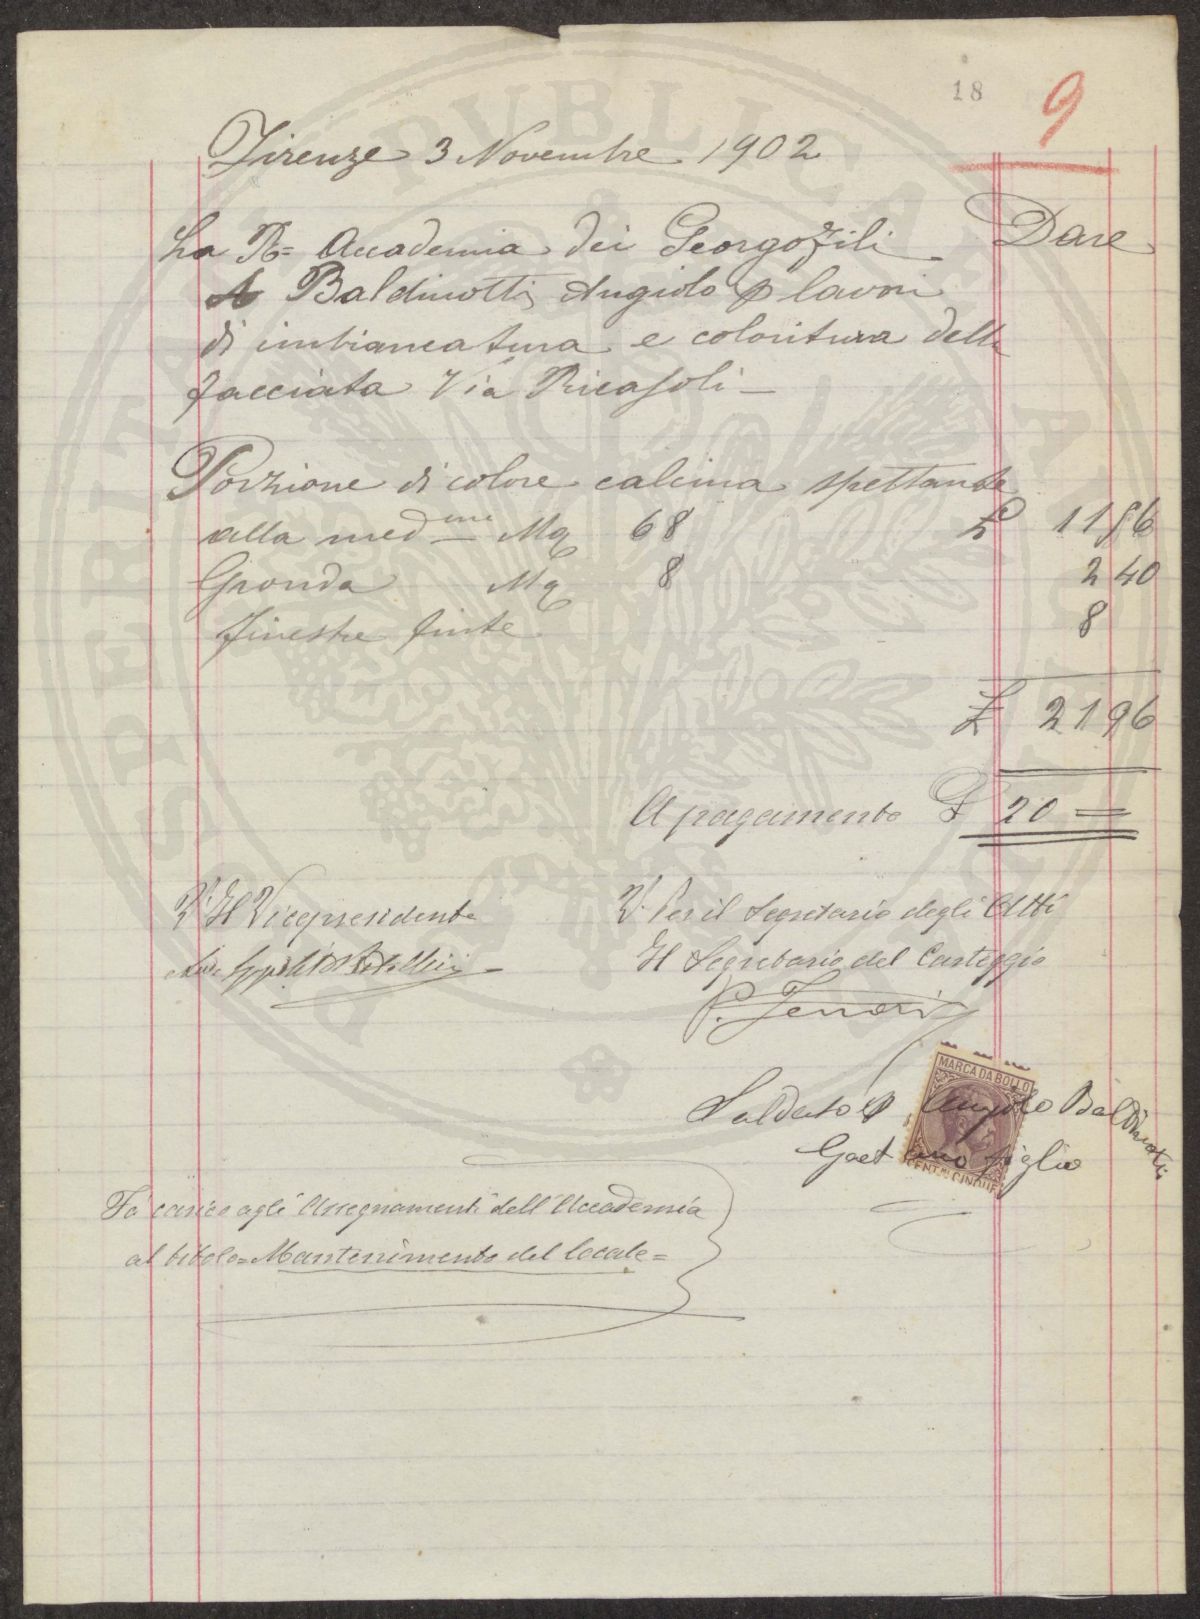 18
9
Firenze 3 Novembre 1902
La R= Accademia dei Georgofili Dare
A Baldinotti Angiolo p lavori
di imbiancatura e coloritura della
facciata Via Ricasoli -
Porzione di colore calcina spettante
alla med ime Mq 68 £ 11 56
Gronda Mq 8 2 40
finestre finte 8
£ 21 96
A pagamento £ 20 =
V° Il Vicepresidente
V° Per il Segretario degli Atti
Il Segretario del Carteggio
MARCA DA BOLLO
Saldato p Angiolo Baldinotti
Gaetano figlio
CENT.MI CINQUE
Fa carico agli Assegnamenti dell'Accademia
al titolo = Mantenimento del locale =
PVBLICAE
PROSPERITATI